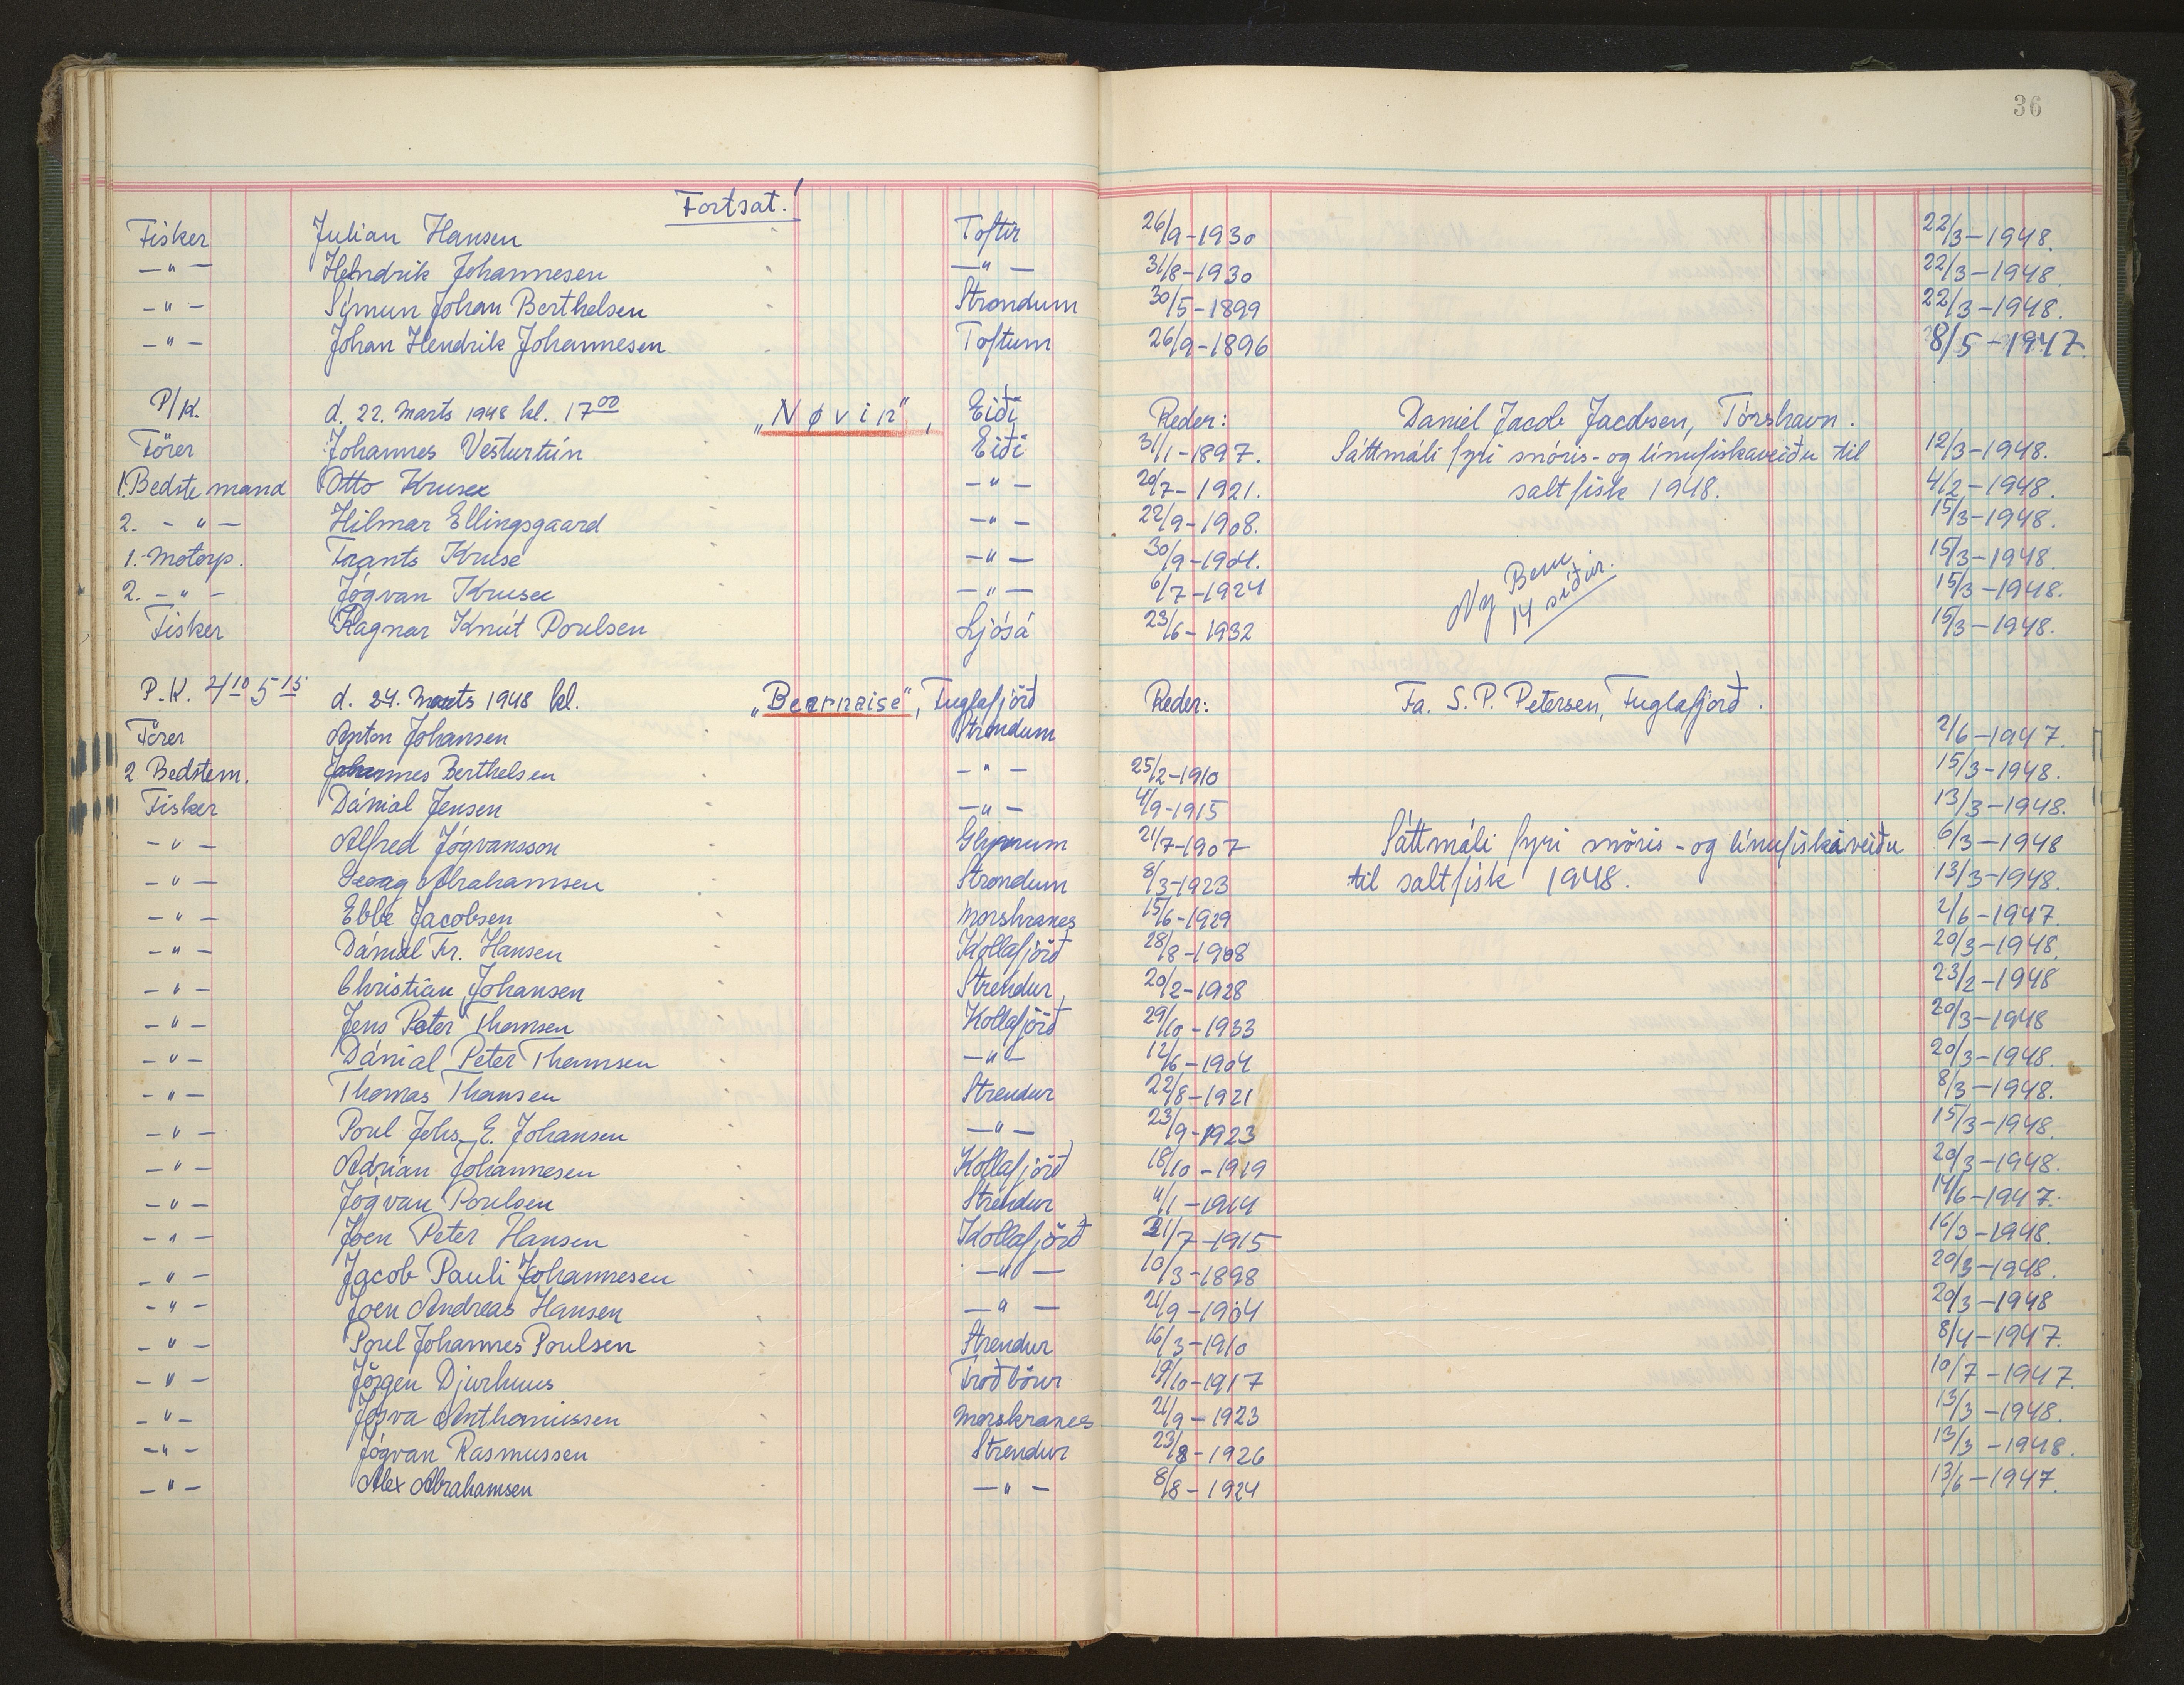 36
Fortsat!
Fisker Julian Hansen Toftir 26/9-1930 22/3-1948.
-"- Hendrik Johannesen -"- 31/8-1930 22/3-1948.
-"- Símun Johan Berthelsen Strondum 30/5-1899 22/3-1948.
-"- Johan Hendrik Johannesen Toftum 26/9-1896 8/5-1947.
P/K. d. 22. Marts 1948 kl. 17 00 "Nøvin", Eiði Reder: Daniel Jacob Jacobsen, Tórshavn.
Förer Johannes Vesturtún Eiði 31/1-1897. Sáttmáli fyri snóris- og línufiskaveiðu til 12/3-1948.
1. Bedstemand Otto Krusee -"- 20/7-1921. saltfisk 1948. 4/2-1948.
2. -"- Hilmar Ellingsgaard -"- 22/9-1908. 15/3-1948.
1. Motorp. Frants Kruse -"- 30/9-1901. 15/3-1948
2. -"- Jógvan Krusee -"- 6/7-1924 Ny Bem. 14 síður. 15/3-1948.
Fisker Ragnar Knút Poulsen Ljósá 23/6-1932 15/3-1948.
P.K. 4 10 5 15 d. 24. Marts 1948 kl. "Bearnaise", Fuglafjörð Reder: Fa. S. P. Petersen, Fuglafjörð.
Förer Anton Johansen Strondum 2/6-1947.
2 Bedstem. Johannes Berthelsen -"- 25/2-1910 15/3-1948.
Fisker Dánial Jensen -"- 4/9-1915 13/3-1948.
-"- Alfred Jógvansson Glyvrum 21/7-1907 Sáttmáli fyri snöris- og línufiskaveiðu 6/3-1948
-"- Georg Abrahamsen Strondum 8/3-1923 til saltfisk 1948. 13/3-1948.
-"- Ebbe Jacobsen Morskranes 15/6-1929 2/6-1947.
-"- Dánial Fr. Hansen Kollafjörð 28/8-1908 20/3-1948.
-"- Christian Johansen Strendur 20/2-1928 23/2-1948
-"- Jens Peter Thomsen Kollafjörð 29/10-1933 20/3-1948
-"- Dánial Peter Thomsen -"- 12/6-1904 20/3-1948.
-"- Thomas Thomsen Strendur 22/8-1921 8/3-1948.
-"- Poul Johs. E. Johansen -"- 23/9-1923 15/3-1948.
-"- Adrian Johannesen Kollafjörð 18/10-1919 20/3-1948.
-"- Jógvan Poulsen Strendur 4/1-1914 14/6-1947.
-"- Joen Peter Hansen Kollafjörð 21/7-1915 16/3-1948.
-"- Jacob Pauli Johannesen -"- 10/3-1898 20/3-1948.
-"- Joen Andreas Hansen -"- 21/9-1904 20/3-1948
-"- Poul Johannes Poulsen Strendur 16/3-1910 8/4-1947.
-"- Jörgen Djurhuus Froðböur 19/10-1917 10/7-1947.
-"- Jósva Anthoniussen Morskranes 21/9-1923 13/3-1948.
-"- Jógvan Rasmussen Strendur 23/8-1926 13/3-1948.
-"- Alex Abrahamsen -"- 8/8-1924 13/6-1947.